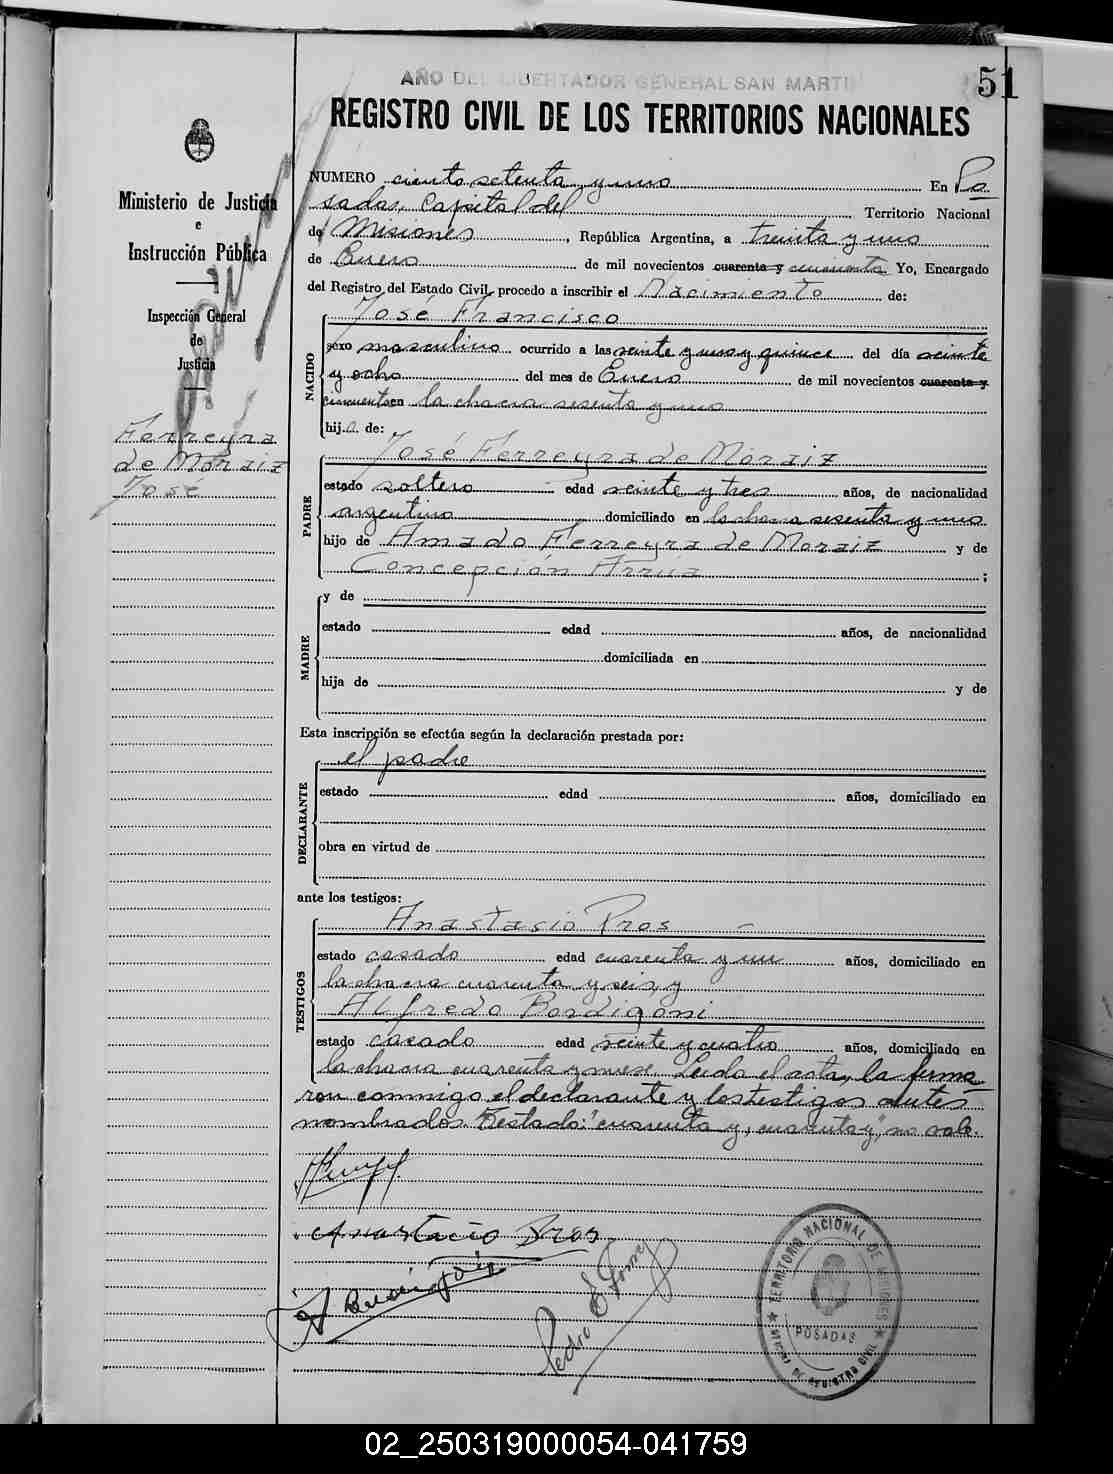 AÑO DEL LIBERTADOR GENERAL SAN MARTIN
51
REGISTRO CIVIL DE LOS TERRITORIOS NACIONALES
Ministerio de Justicia
e
Instrucción Pública
Inspección General
de
Justicia
Ferreyra
de Moraiz
José
NUMERO ciento setenta y uno En Po
sadas, Capital del Territorio Nacional
de Misiones, República Argentina, a treinta y uno
de Enero de mil novecientos cuarenta y cincuenta Yo, Encargado
del Registro del Estado Civil, procedo a inscribir el Nacimiento de:
NACIDO
José Francisco
sexo masculino ocurrido a las veinte y una y quince del día veinte
y ocho del mes de Enero de mil novecientos cuarenta y
cincuenta en la chacra sesenta y uno
hijo de:
PADRE
José Ferreyra de Moraiz
estado soltero edad veinte y tres años, de nacionalidad
argentino domiciliado en la chacra sesenta y uno
hijo de Amado Ferreyra de Moraiz y de
Concepción Arrúa ;
MADRE
y de
estado edad años, de nacionalidad
domiciliada en
hija de y de
Esta inscripción se efectúa según la declaración prestada por:
DECLARANTE
el padre
estado edad años, domiciliado en
obra en virtud de
ante los testigos:
TESTIGOS
Anastasio Pros
estado casado edad cuarenta y un años, domiciliado en
la chacra cuarenta y seis, y
Alfredo Bordigoni
estado casado edad veinte y cuatro años, domiciliado en
la chacra cuarenta y nueve. Leida el acta, la firma
ron conmigo el declarante y los testigos antes
nombrados. Testado: "cuarenta y, cuarenta y", no vale.
Anastacio Bros
Pedro
TERRITORIO NACIONAL DE MISIONES
POSADAS
DE REGISTRO CIVIL
02_250319000054-041759